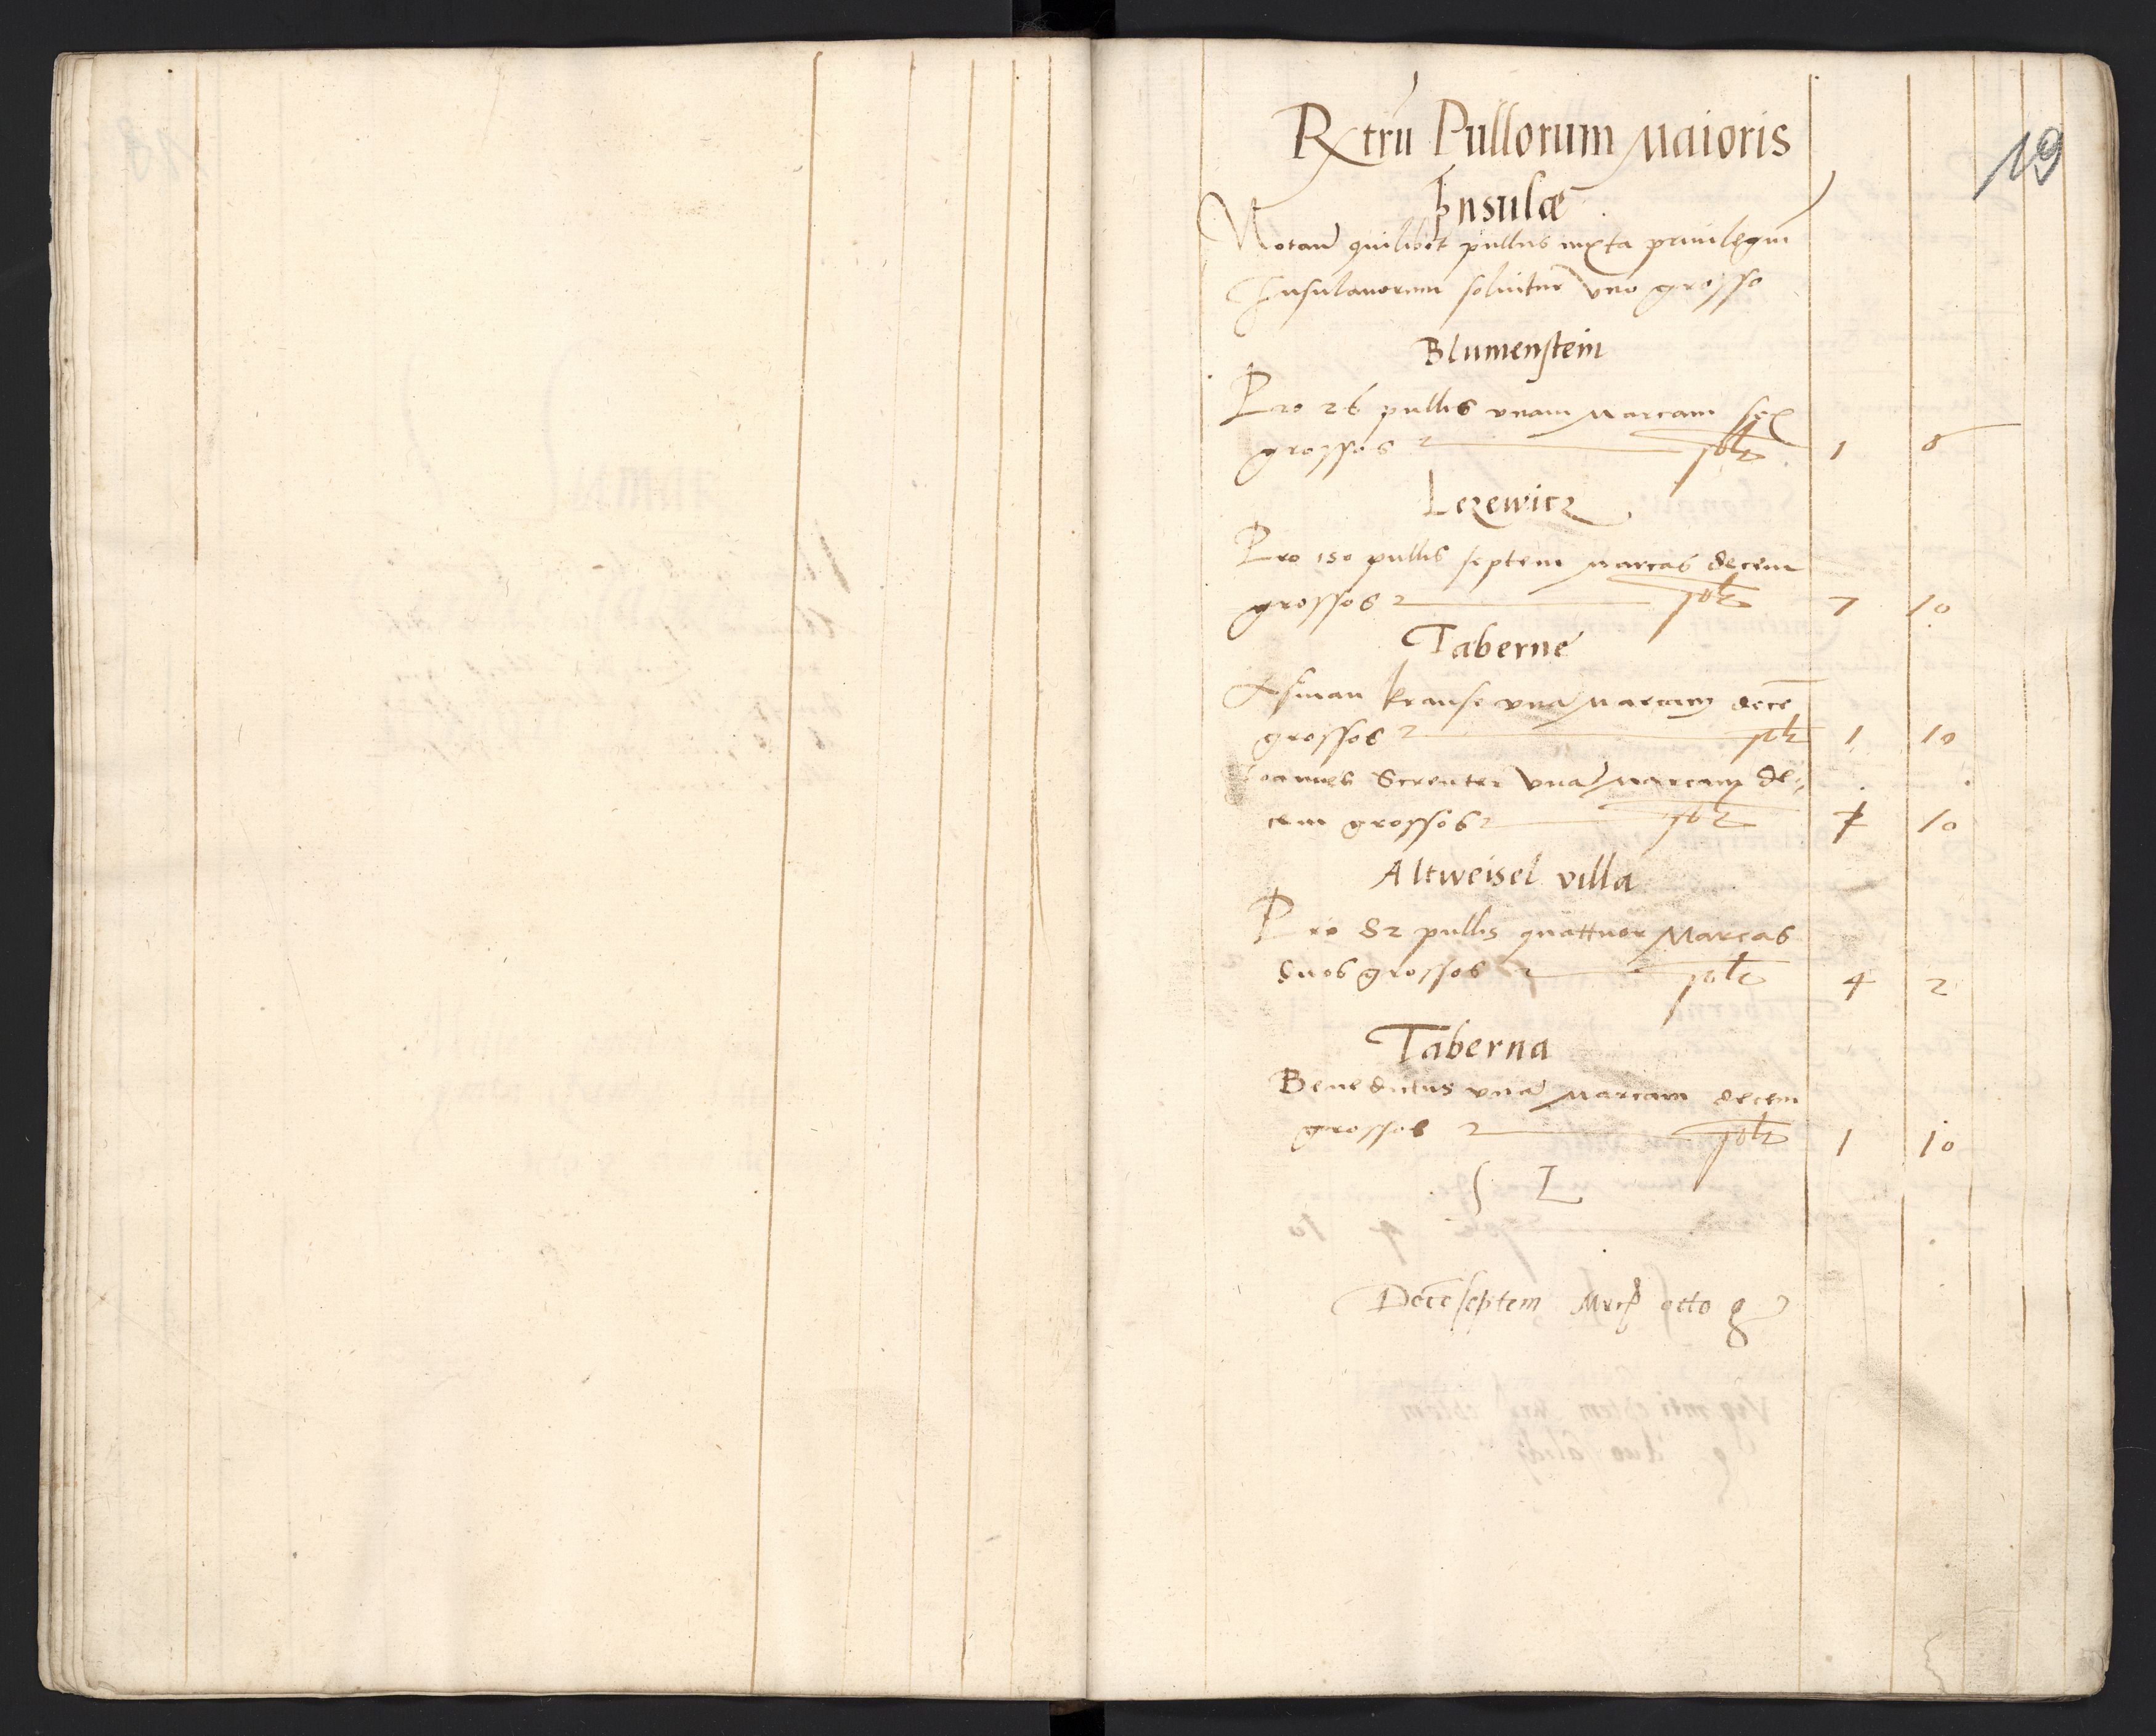 19
Rxtrũ Pullorum Maioris
Insulæ
Notand quilibet pullus iuxta privilegiũ
Insulanorum solvitur uno grosso
Blumenstein
Pro 26 pullis unam Marcam sex
grossos solt 1 6
Lezewicz
Pro 150 pullis septem Marcas decem
grossos solt 7 10
Taberne
Asman Krause unã Marcam decẽ
grossos solt 1 10
Joannes Screnter unã Marcam de,
cem grossos solt 1 10
Altweisel villa
Pro 82 pullis quattuor Marcas
duos grossos solt 4 2
Taberna
Benedictus unã Marcam decem
grossos solt 1 10
S L
Decẽseptem Mrcs octo g